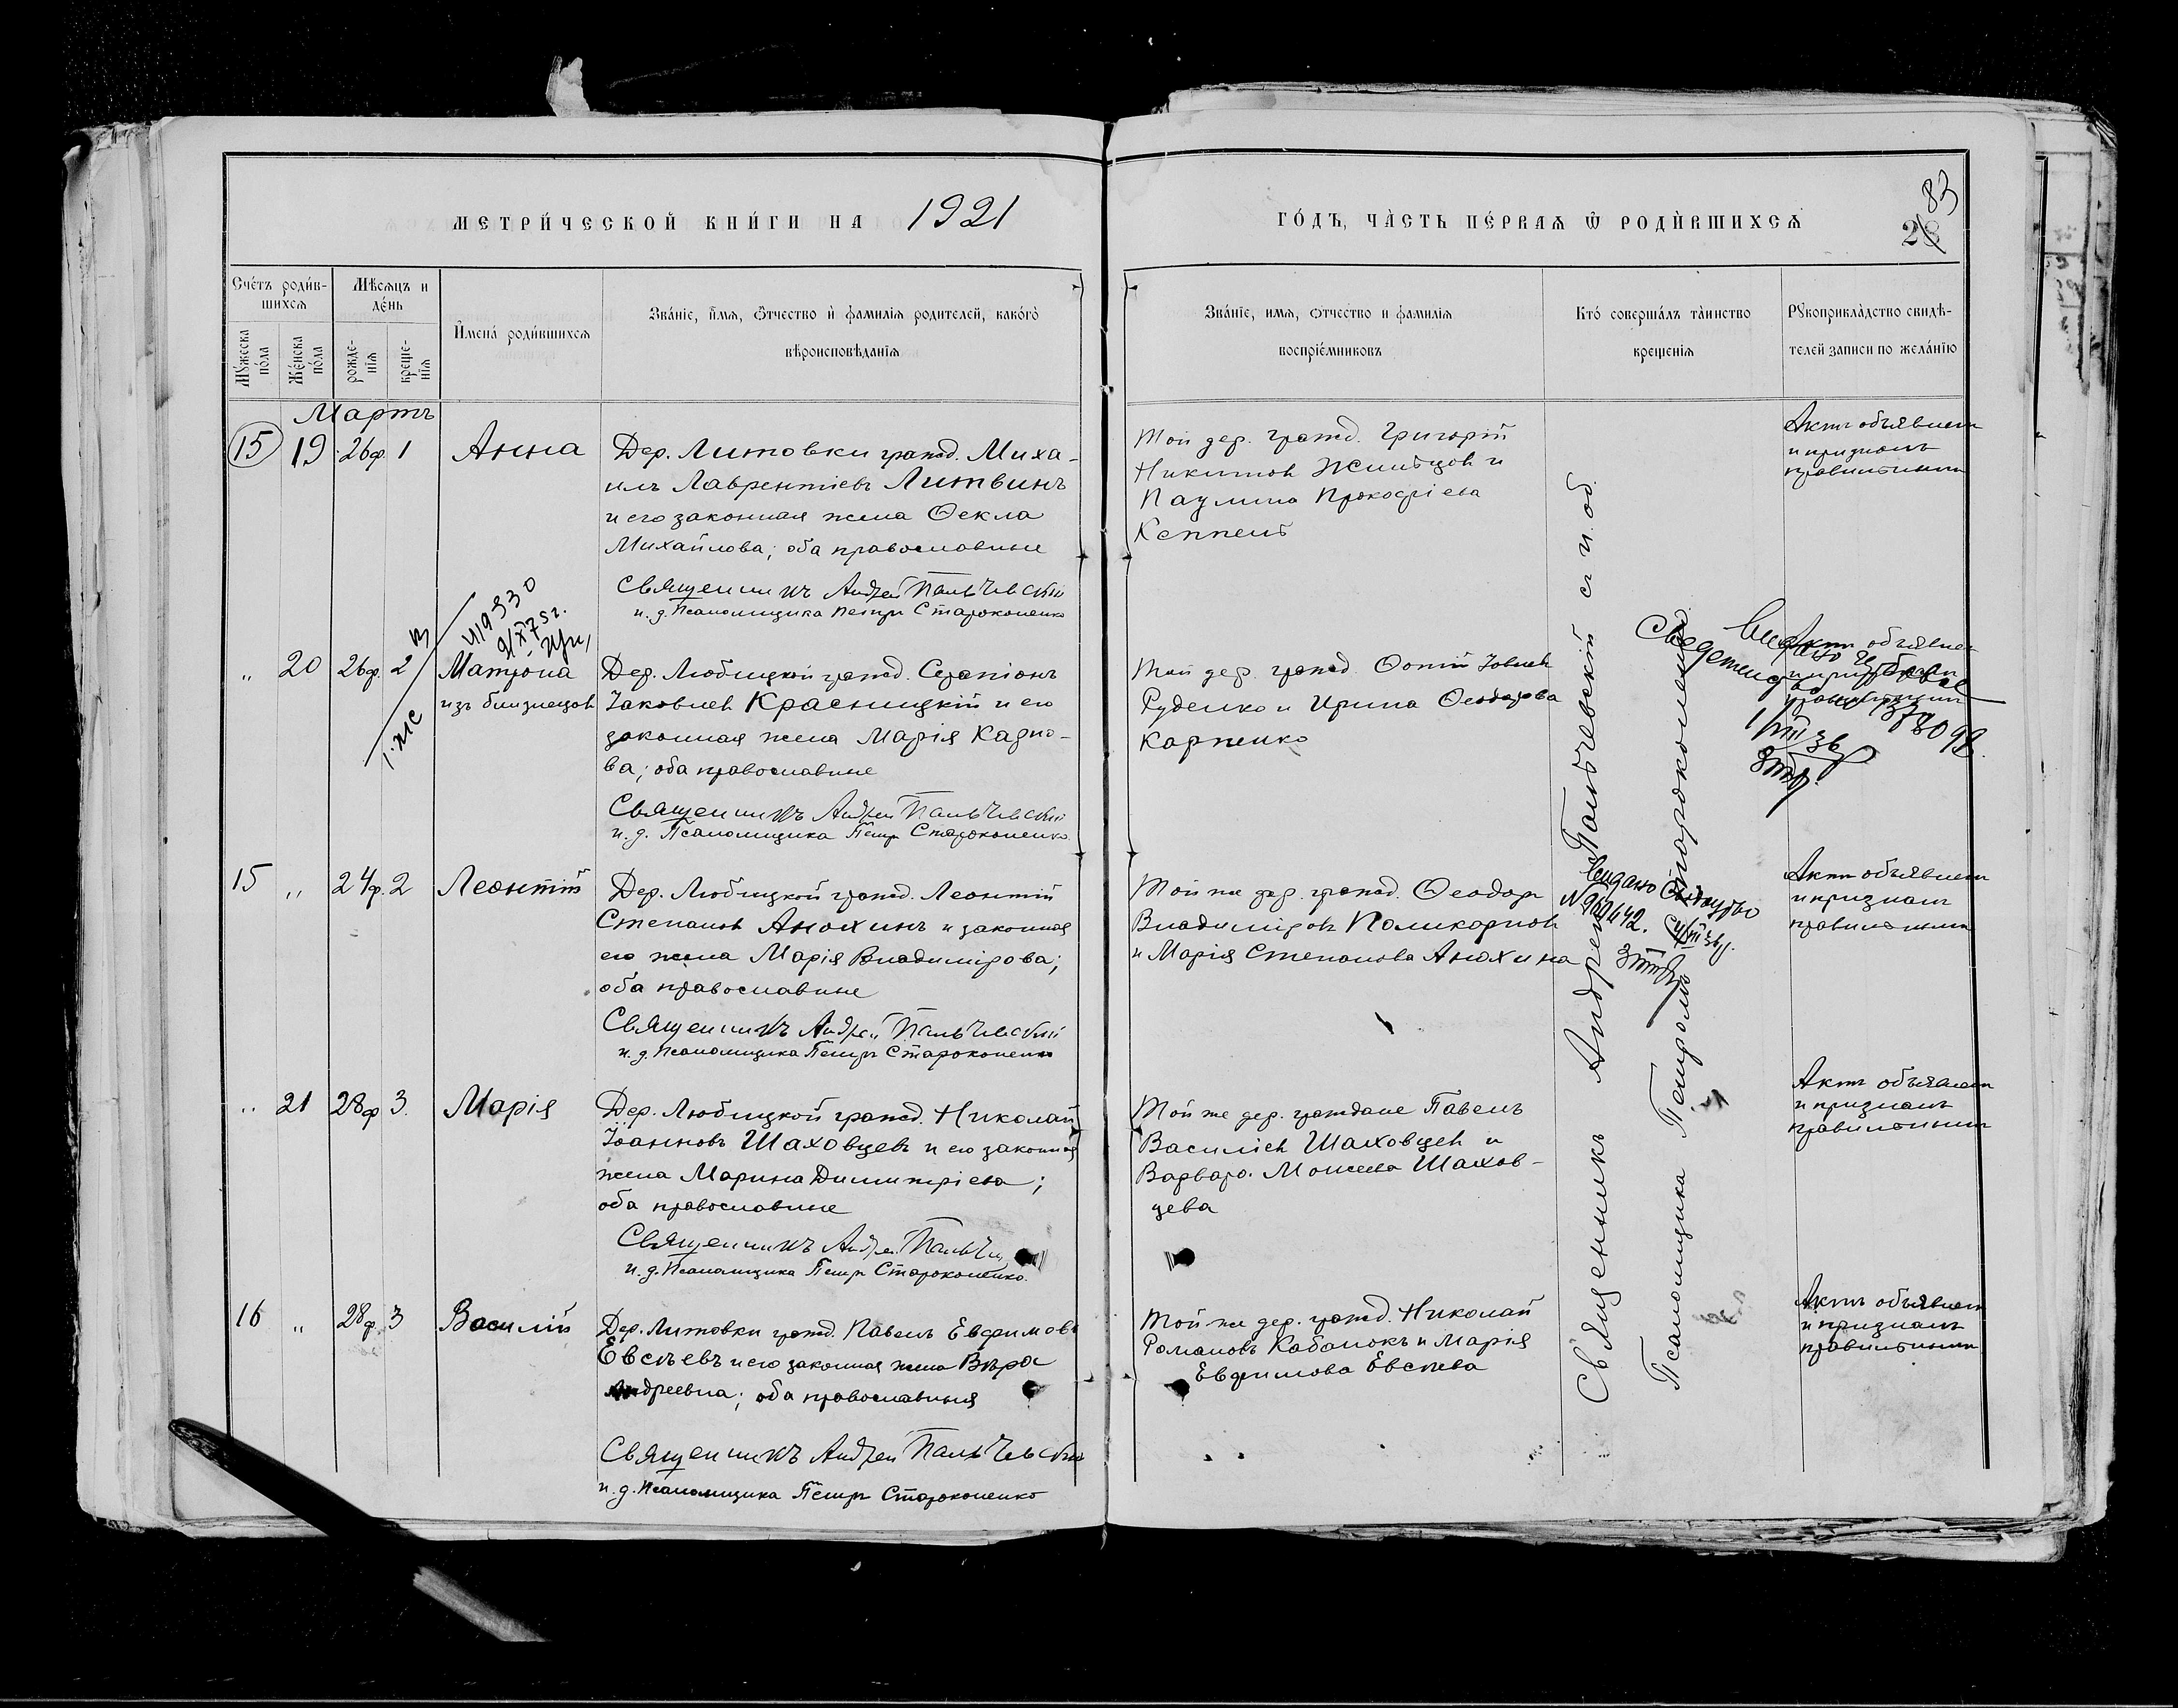 МЕТРИ́ЧЕСКОЙ КНИ́ГИ НА 1921
ГО́ДЪ, ЧА̀СТЬ ПЕ́РВАѦ Ѿ РОДЍВШИХСѦ
83
28
Сче́тъ роди́в-
шихсѧ
Мѣсѧцъ и
де́нь
Мꙋ́жеска
по́ла
Же́нска
по́ла
рожде-
нїѧ
креще-
нїѧ
И҆мена̀ роди́вшихсѧ
Зва́нїе, и҆́мѧ, ѻ҆́тчество и҆ фамилїѧ родителей, како́гѡ
вѣроисповѣданїѧ
Зва́нїе, имѧ, ѻтчество и фамилїѧ
воспрїе́мниковъ
Кто́ соверша́лъ та̀инство
крещенїѧ
Рꙋкоприкла̀дство свидѣ-
телей записи по жела́нїю
Мартъ
15 19 26ф. 1 Анна
Дер. Литовки гражд. Миха-
илъ Лаврентіевъ Литвинъ
и его законная жена Ѳекла
Михайлова; оба православные
Священникъ Андрей Пальчевскій
и. д. Псаломщика Петръ Староконенко
Той дер. гражд. Григорій
Никитов
Прокофіева
Актъ объявленъ
и признанъ
правильнымъ
„ 20 26ф. 2 Матрона
изъ близнецов
Дер. Любицкой гражд. Серапіонъ
Іаковлев Красницкій и его
законная жена Марія Карпо-
ва; оба православные
Священникъ Андрей Пальчевскій
и. д. Псаломщика Петръ Староконенко
Той дер. гражд. Ѳотій Іовлев
Руденко и Ирина Ѳеодорова
Карпенко
Актъ объявленъ
15 „ 24ф. 2 Леонтій
Дер. Любицкой гражд. Леонтій
Степанов Анохинъ и законная
его жена Марія Владимірова;
оба православные
Священникъ Андрей Пальчевскій
и. д. Псаломщика Петръ Староконенко
Той же дер. гражд. Ѳеодоръ
Владиміровъ Поликарпов
и Марія Степанова Анохина
Актъ объявленъ
и признанъ
правильнымъ
„ 21 28ф 3. Марія
Дер. Любицкой гражд. Николай
Іоанновъ Шаховцевъ и его законная
жена Марина Димитріева;
оба православные
Священникъ Андрей
и. д. Псаломщика Петръ Староконенко.
Той же дер. граждане Павелъ
Василіев Шаховцев и
Варвара Моисеева Шахов-
цева
Актъ объявленъ
и признанъ
правильнымъ
16 „ 28ф. 3 Василій
Дер. Литовки гражд. Павелъ Евфимовъ
Евсѣевъ и его законная жена Вѣра
Андреевна; оба православныя
Священникъ Андрей Пальчевскій
и. д. Псаломщика Петръ Староконенко
Той же дер. гражд. Николай
Романовъ Кабанокъ и Марія
Евфимова Евсѣева
Актъ объявленъ
и признанъ
правильнымъ
Священникъ Андрей Пальчевскій с и. об.
Псаломщика Петромъ Староконенко